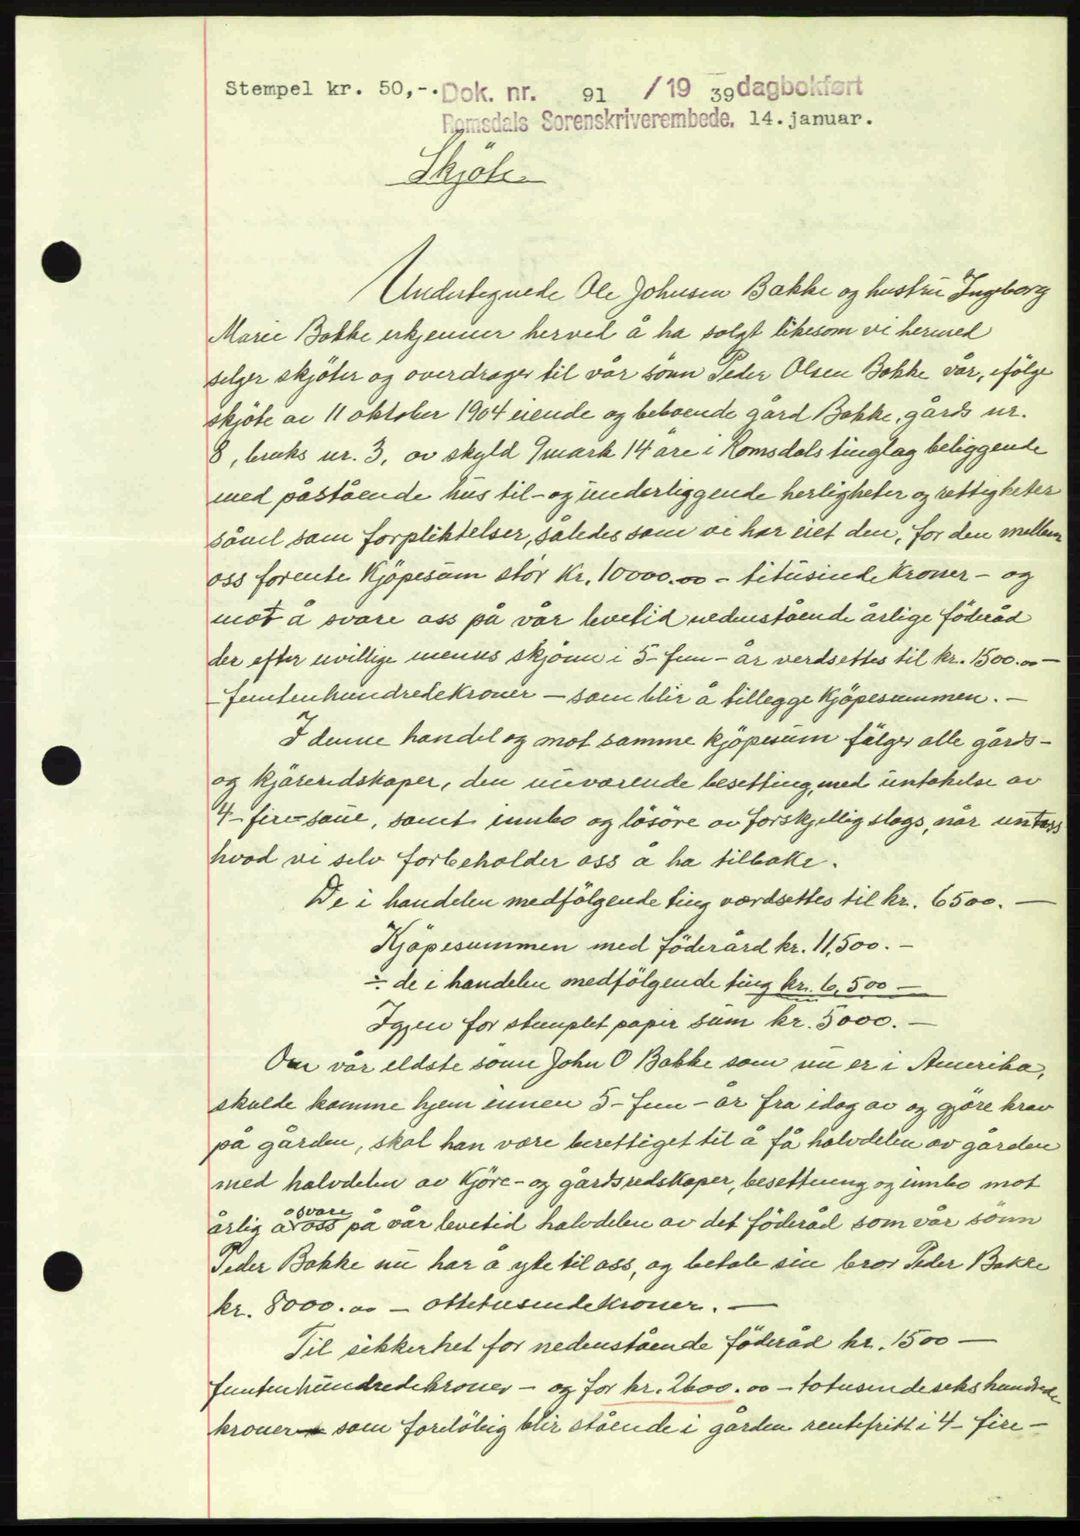 Stempel kr. 50,-. Dok. nr. 91 /19 39 dagbokført
Romsdals Sorenskriverembede. 14. januar.
Skjöte.
Undertegnede Ole Johnsen Bakke og hustru Ingborg
Marie Bakke erkjenner herved å ha solgt likesom vi hermed
selger skjöter og overdrager til vår sönn Peder Olsen Bakke vår, ifölge
skjöte av 11 oktober 1904 eiende og beboende gård Bakke, gårds nr.
8, bruks nr. 3, av skyld 9 mark 14 øre i Romsdals tinglag beliggende
med påstående hus til- og underliggende herligheter og rettigheter
såvel som forpliktelser, således som vi har eiet den, for den mellem
oss forente Kjöpesum stor Kr. 10000.00 – titusinde Kroner – og
mot å svare oss på vår levetid nedenstående årlige föderåd
der efter uvillige menns skjönn i 5-fem-år verdsettes til kr. 1500.00 –
– femtenhundredekroner – som blir å tillegge Kjöpesummen. –
I denne handel og mot samme kjöpesum fölger alle gårds-
og kjöreredskaper, den nuværende besetting, med untakelse av
4-fire-saue, samt innbo og lösöre av forskjellig slags, når untas
hvad vi selv forbeholder oss å ha tilbake.
De i handelen medfölgende ting værdsettes til kr. 6500. –
Kjöpesummen med föderård kr. 11,500. –
÷ de i handelen medfölgende ting kr. 6,500 –
Igjen for stemplet papir sum kr. 5000. –
Om vår eldste sönn John O Bakke som nu er i Amerika,
skulde komme hjem innen 5-fem-år fra idag av og gjöre krav
på gården, skal han være berettiget til å få halvdelen av gården
med halvdelen av Kjöre- og gårdsredskaper, besettning og innbo mot
årlig å svare oss på vår levetid halvdelen av det föderåd som vår sönn
Peder Bakke nu har å yte til oss, og betale sin bror Peder Bakke
kr. 8000.00 – ottetusindekroner. –
Til sikkerhet for nedenstående föderåd kr. 1500 –
femtenhundredekroner – og for kr. 2600.00 – totusindesekshundrede
kroner som forelöbig blir stående i gården rentefritt i 4-fire-